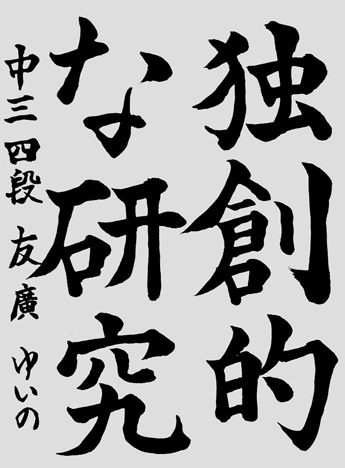 独創的
な研究
中三 四段 友廣 ゆいの